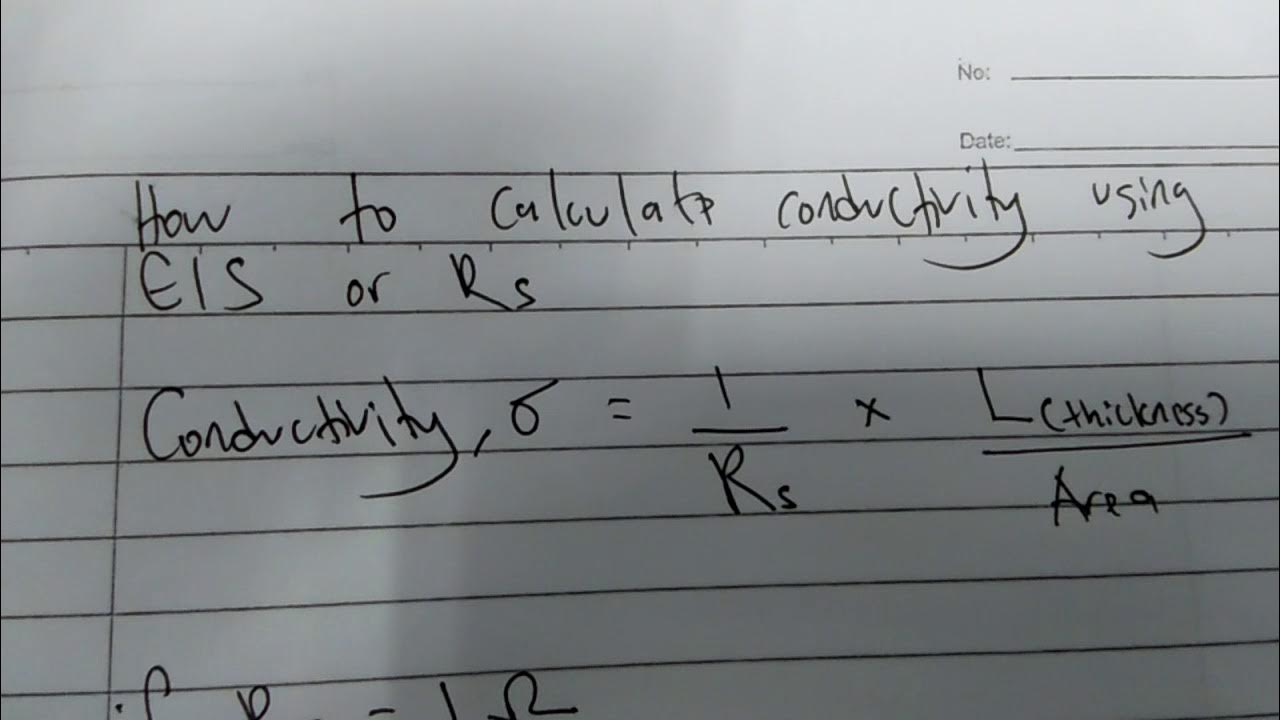 No:
Date:
How to calculate conductivity using
EIS or Rs
Conductivity, σ = 1/Rs × L(thickness)/Area
if R = 1 Ω